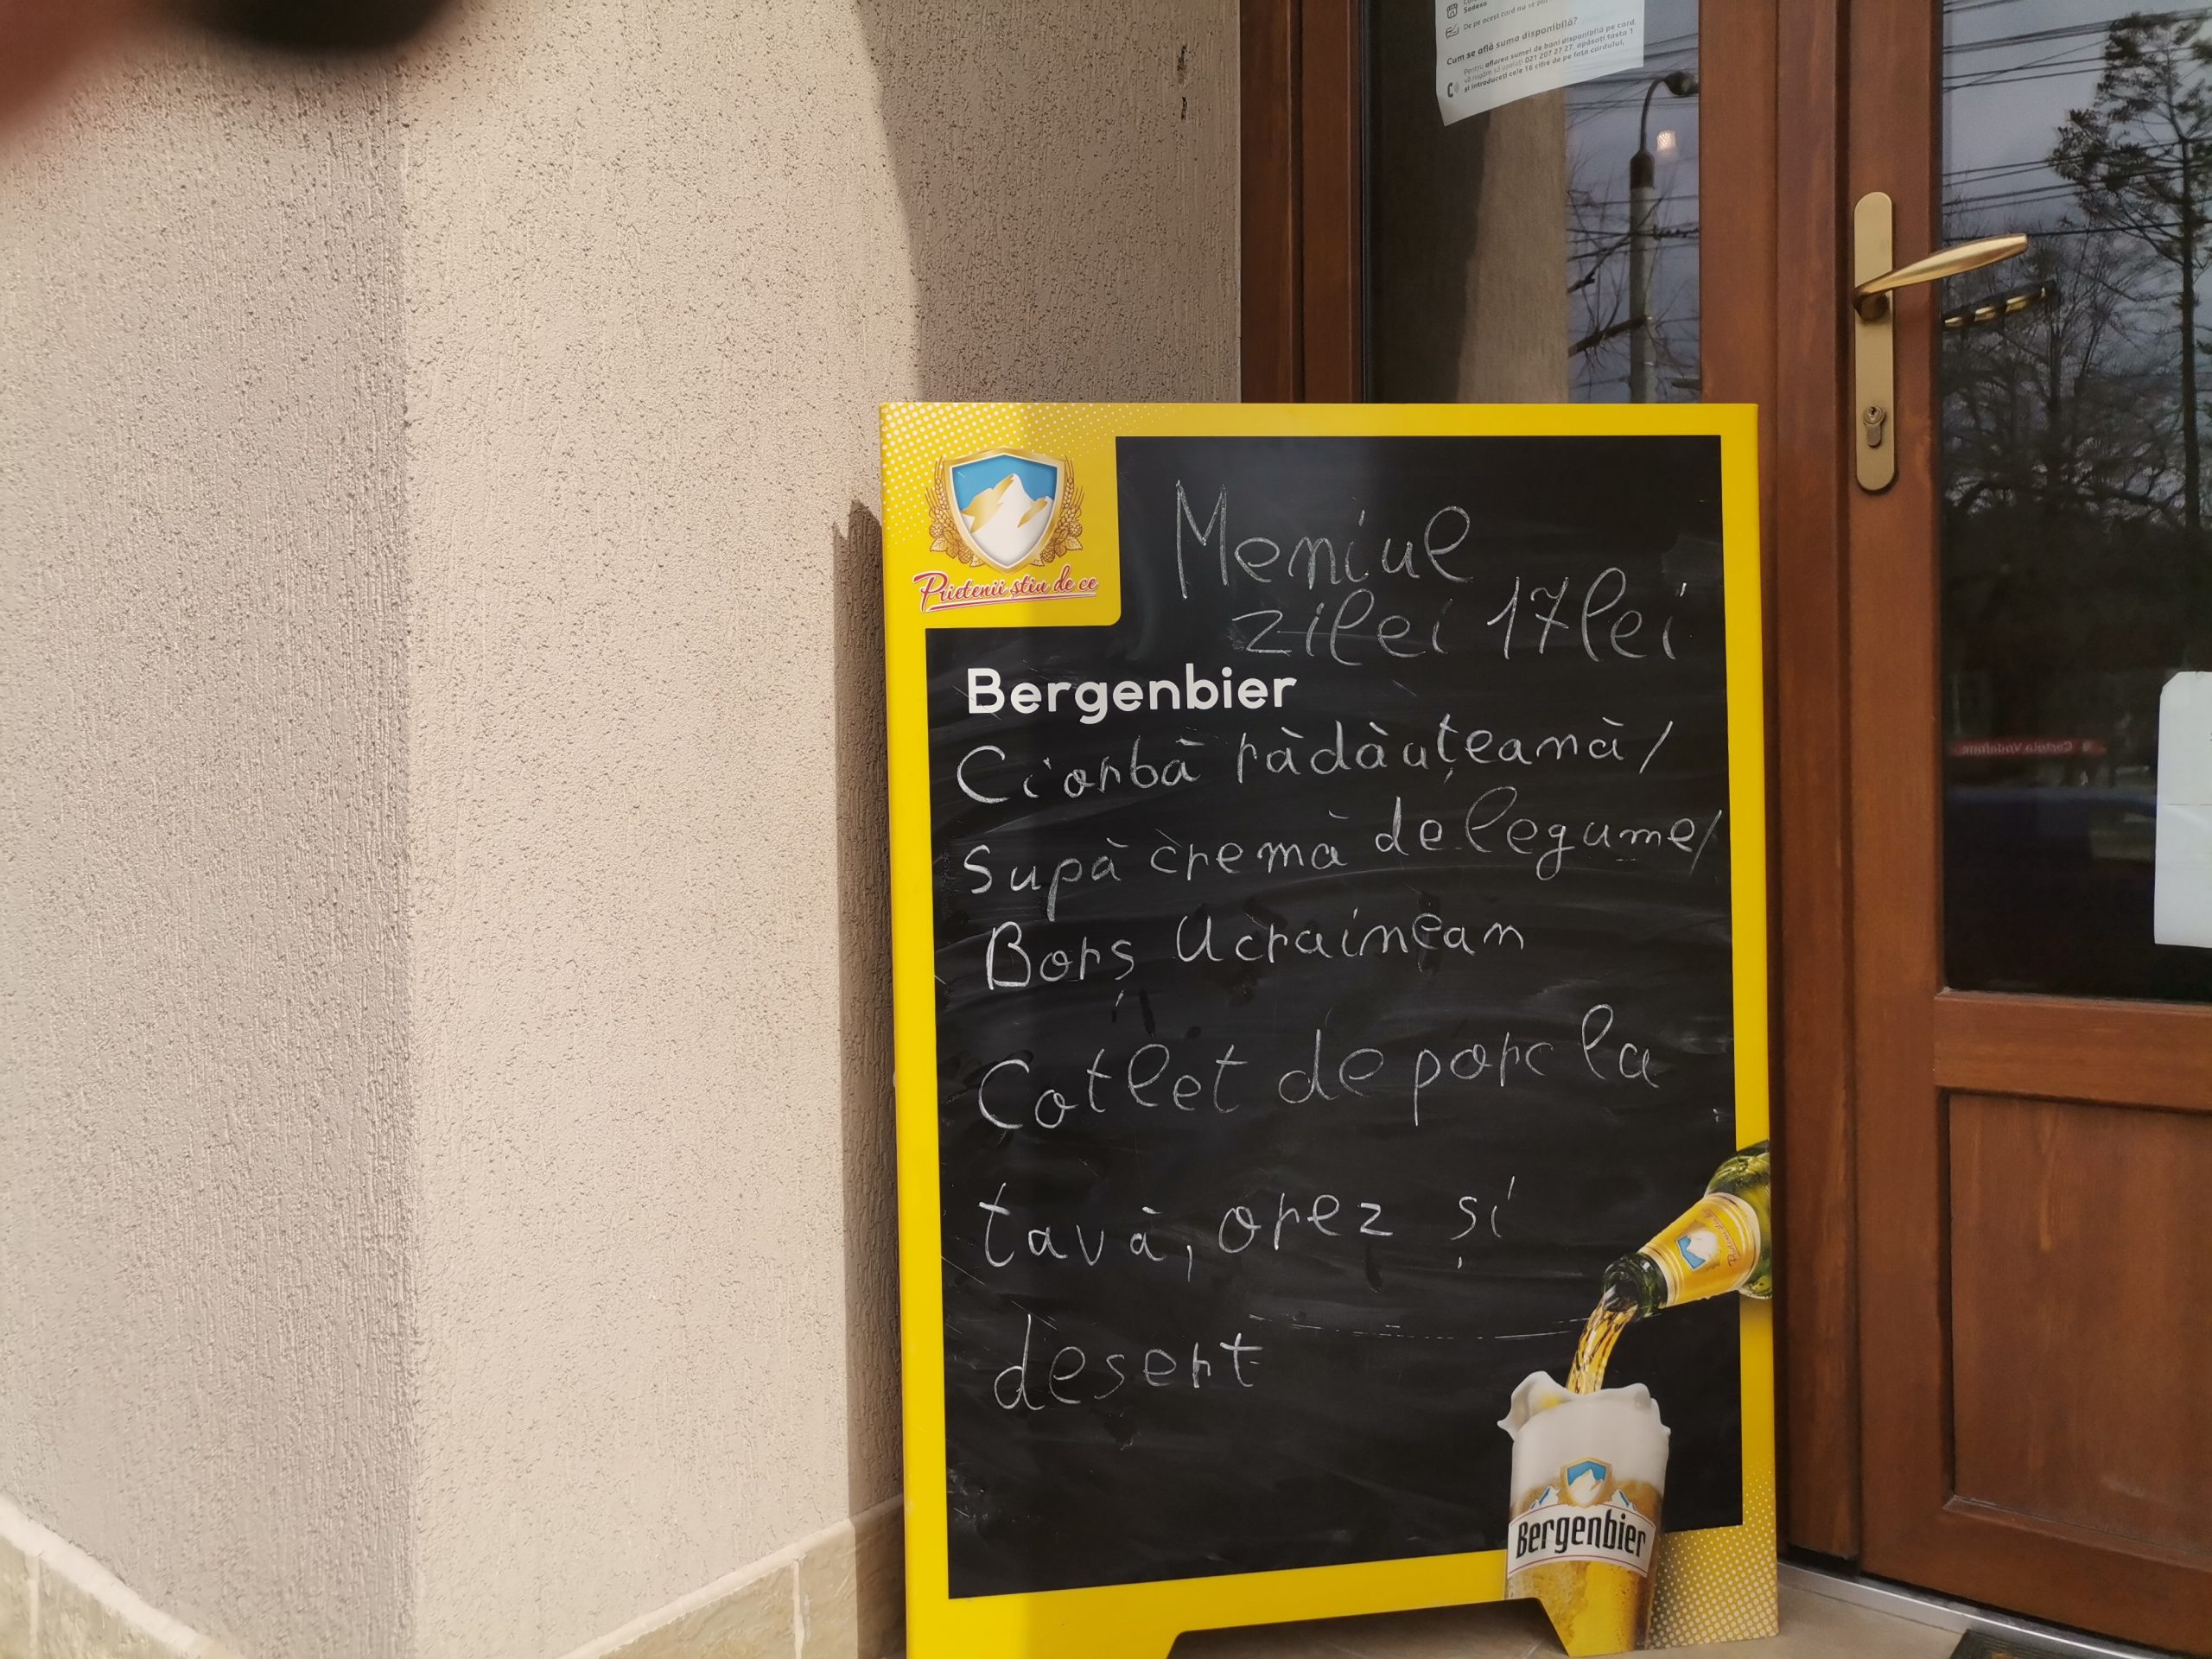 Sodexo
De pe acest card nu se pot
Cum se află suma disponibilă?
Pentru aflarea sumei de bani disponibilă pe card,
vă rugăm să apelați 021 207 27 27, apăsați tasta 1
și introduceți cele 16 cifre de pe fața cardului.
Prietenii știu de ce
Meniul
zilei 17 lei
Bergenbier
Ciorbă rădăuțeană/
Supă cremă de legume/
Borș Ucrainean
Cotlet de porc la
tavă, orez și
desert
Bergenbier